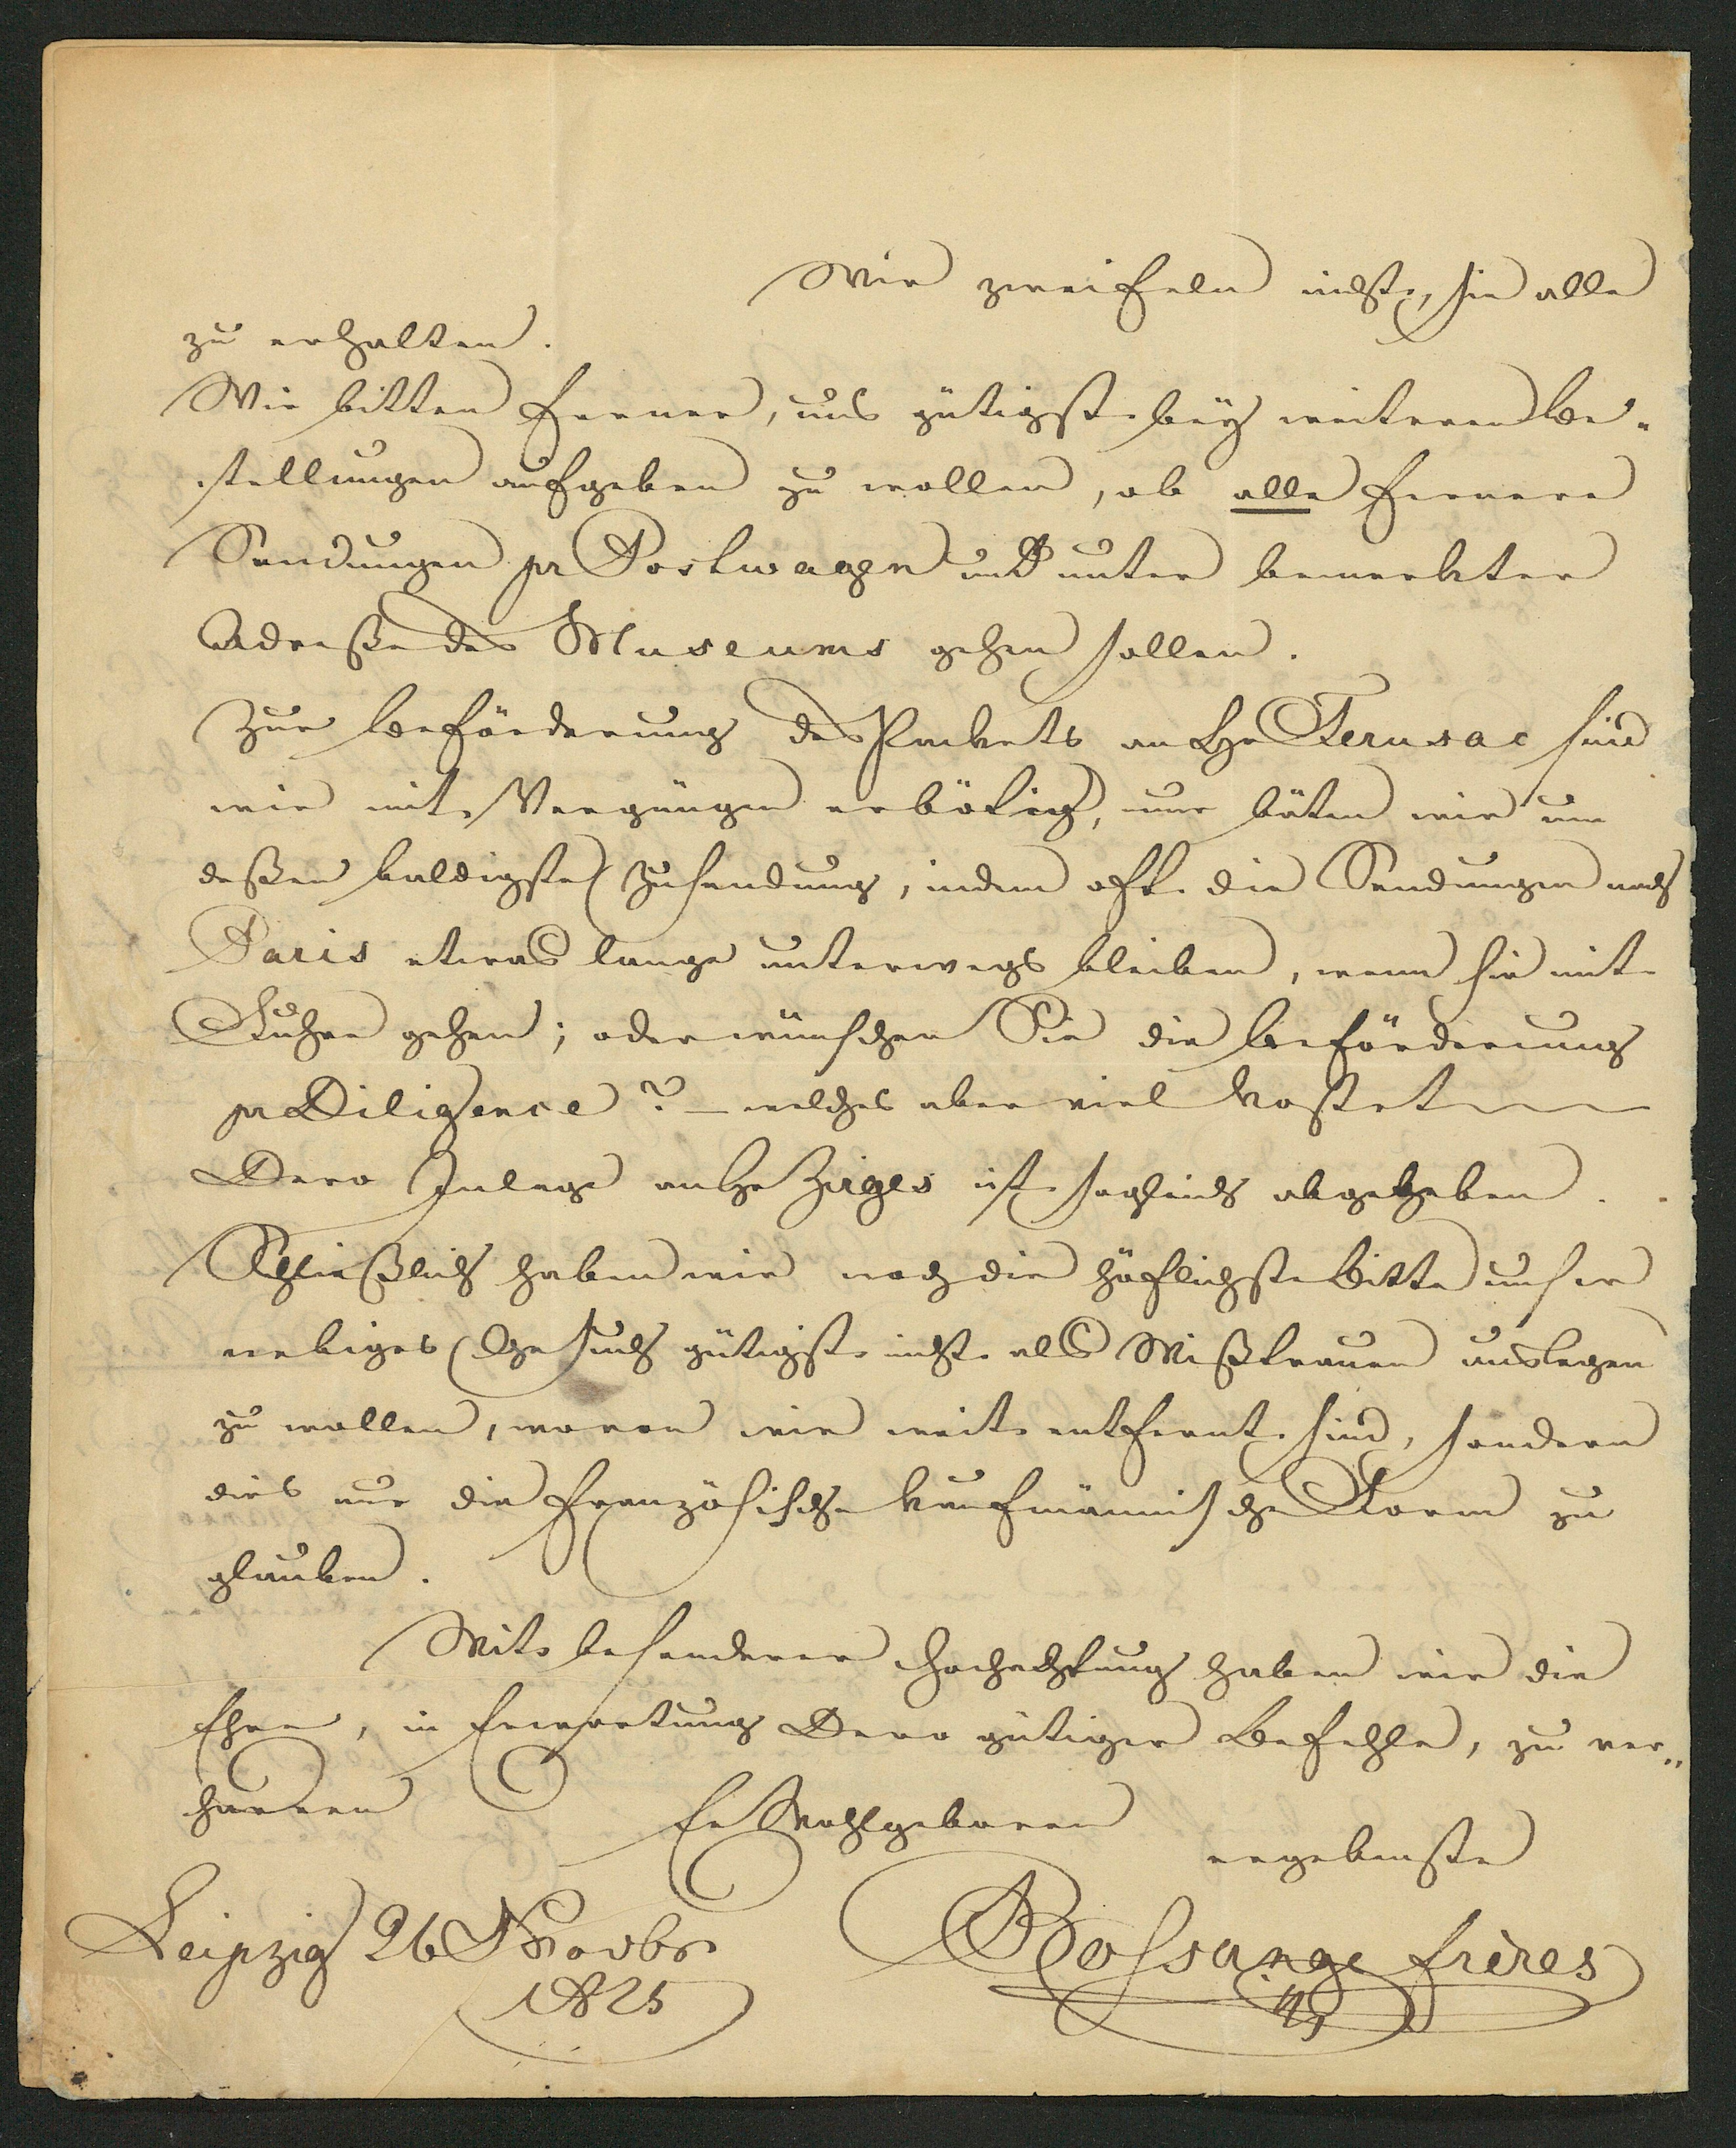 Wir zweifeln nicht, sie alle
zu erhalten.
Wir bitten ferner, uns gütigst bey weiteren Be-
stellungen aufgeben zu wollen, ob alle fernere
Sendungen pr Postwagen und unter bemerkter
Adreße des Museums gehen sollen.
Zur Beförderung des Packets an Hr Ferusac sind
wir mit Vergnügen erbötig, nur bäten wir um
deßen baldigste Zusendung, indem oft die Sendungen nach
Paris etwas lange unterwegs bleiben, wenn sie mit
Fuhre gehen; oder wünschen Sie die Beförderung
pr Diligence? – welches aber viel kostet
Dero Inlage an Hr Zirges ist sogleich abgegeben.
Schließlich haben wir noch die höflichste Bitte unser
obiges Gesuch gütigst nicht als Mißtrauen auslegen
zu wollen, wovon wir weit entfernt sind, sondern
dies nur die französische kaufmännische Form zu
glauben.
Mit besonderer Hochachtung haben wir die
Ehre, in Erwartung Dero gütiger Befehle, zu ver-
harren
Ew Wohlgeboren
ergebenste
Leipzig 26 Novbr
1825
Bossange frères